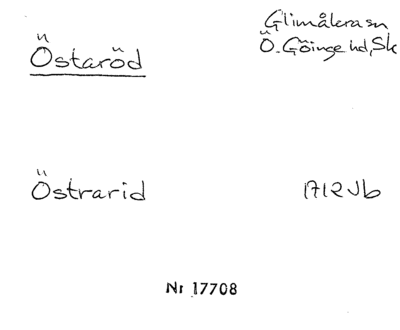 Östaröd
Glimåkra sn
Ö. Göinge hd, Sk
Östrarid
1712 Jb
Nr 17708